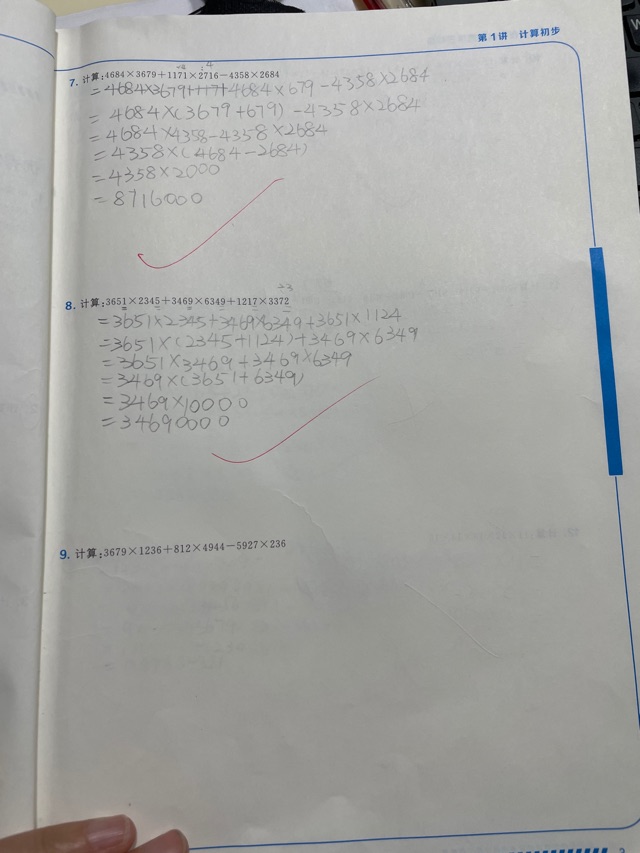 第1讲 计算初步
÷4
7. 计算:4684×3679+1171×2716-4358×2684
=4684×3679+1171 4684×679-4358×2684
=4684×(3679+679)-4358×2684
=4684×4358-4358×2684
=4358×(4684-2684)
=4358×2000
=8716000
÷3
8. 计算:3651×2345+3469×6349+1217×3372
=3651×2345+3469×6349+3651×1124
=3651×(2345+1124)+3469×6349
=3651×3469+3469×6349
=3469×(3651+6349)
=3469×10000
=34690000
9. 计算:3679×1236+812×4944-5927×236
3